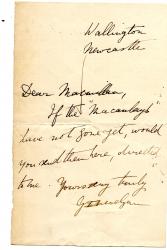 Wallington
Newcastle
Dear Macmillan,
If the "Macaulays"
have not gone yet, would
you send them here, directed
to me. Yours very truly